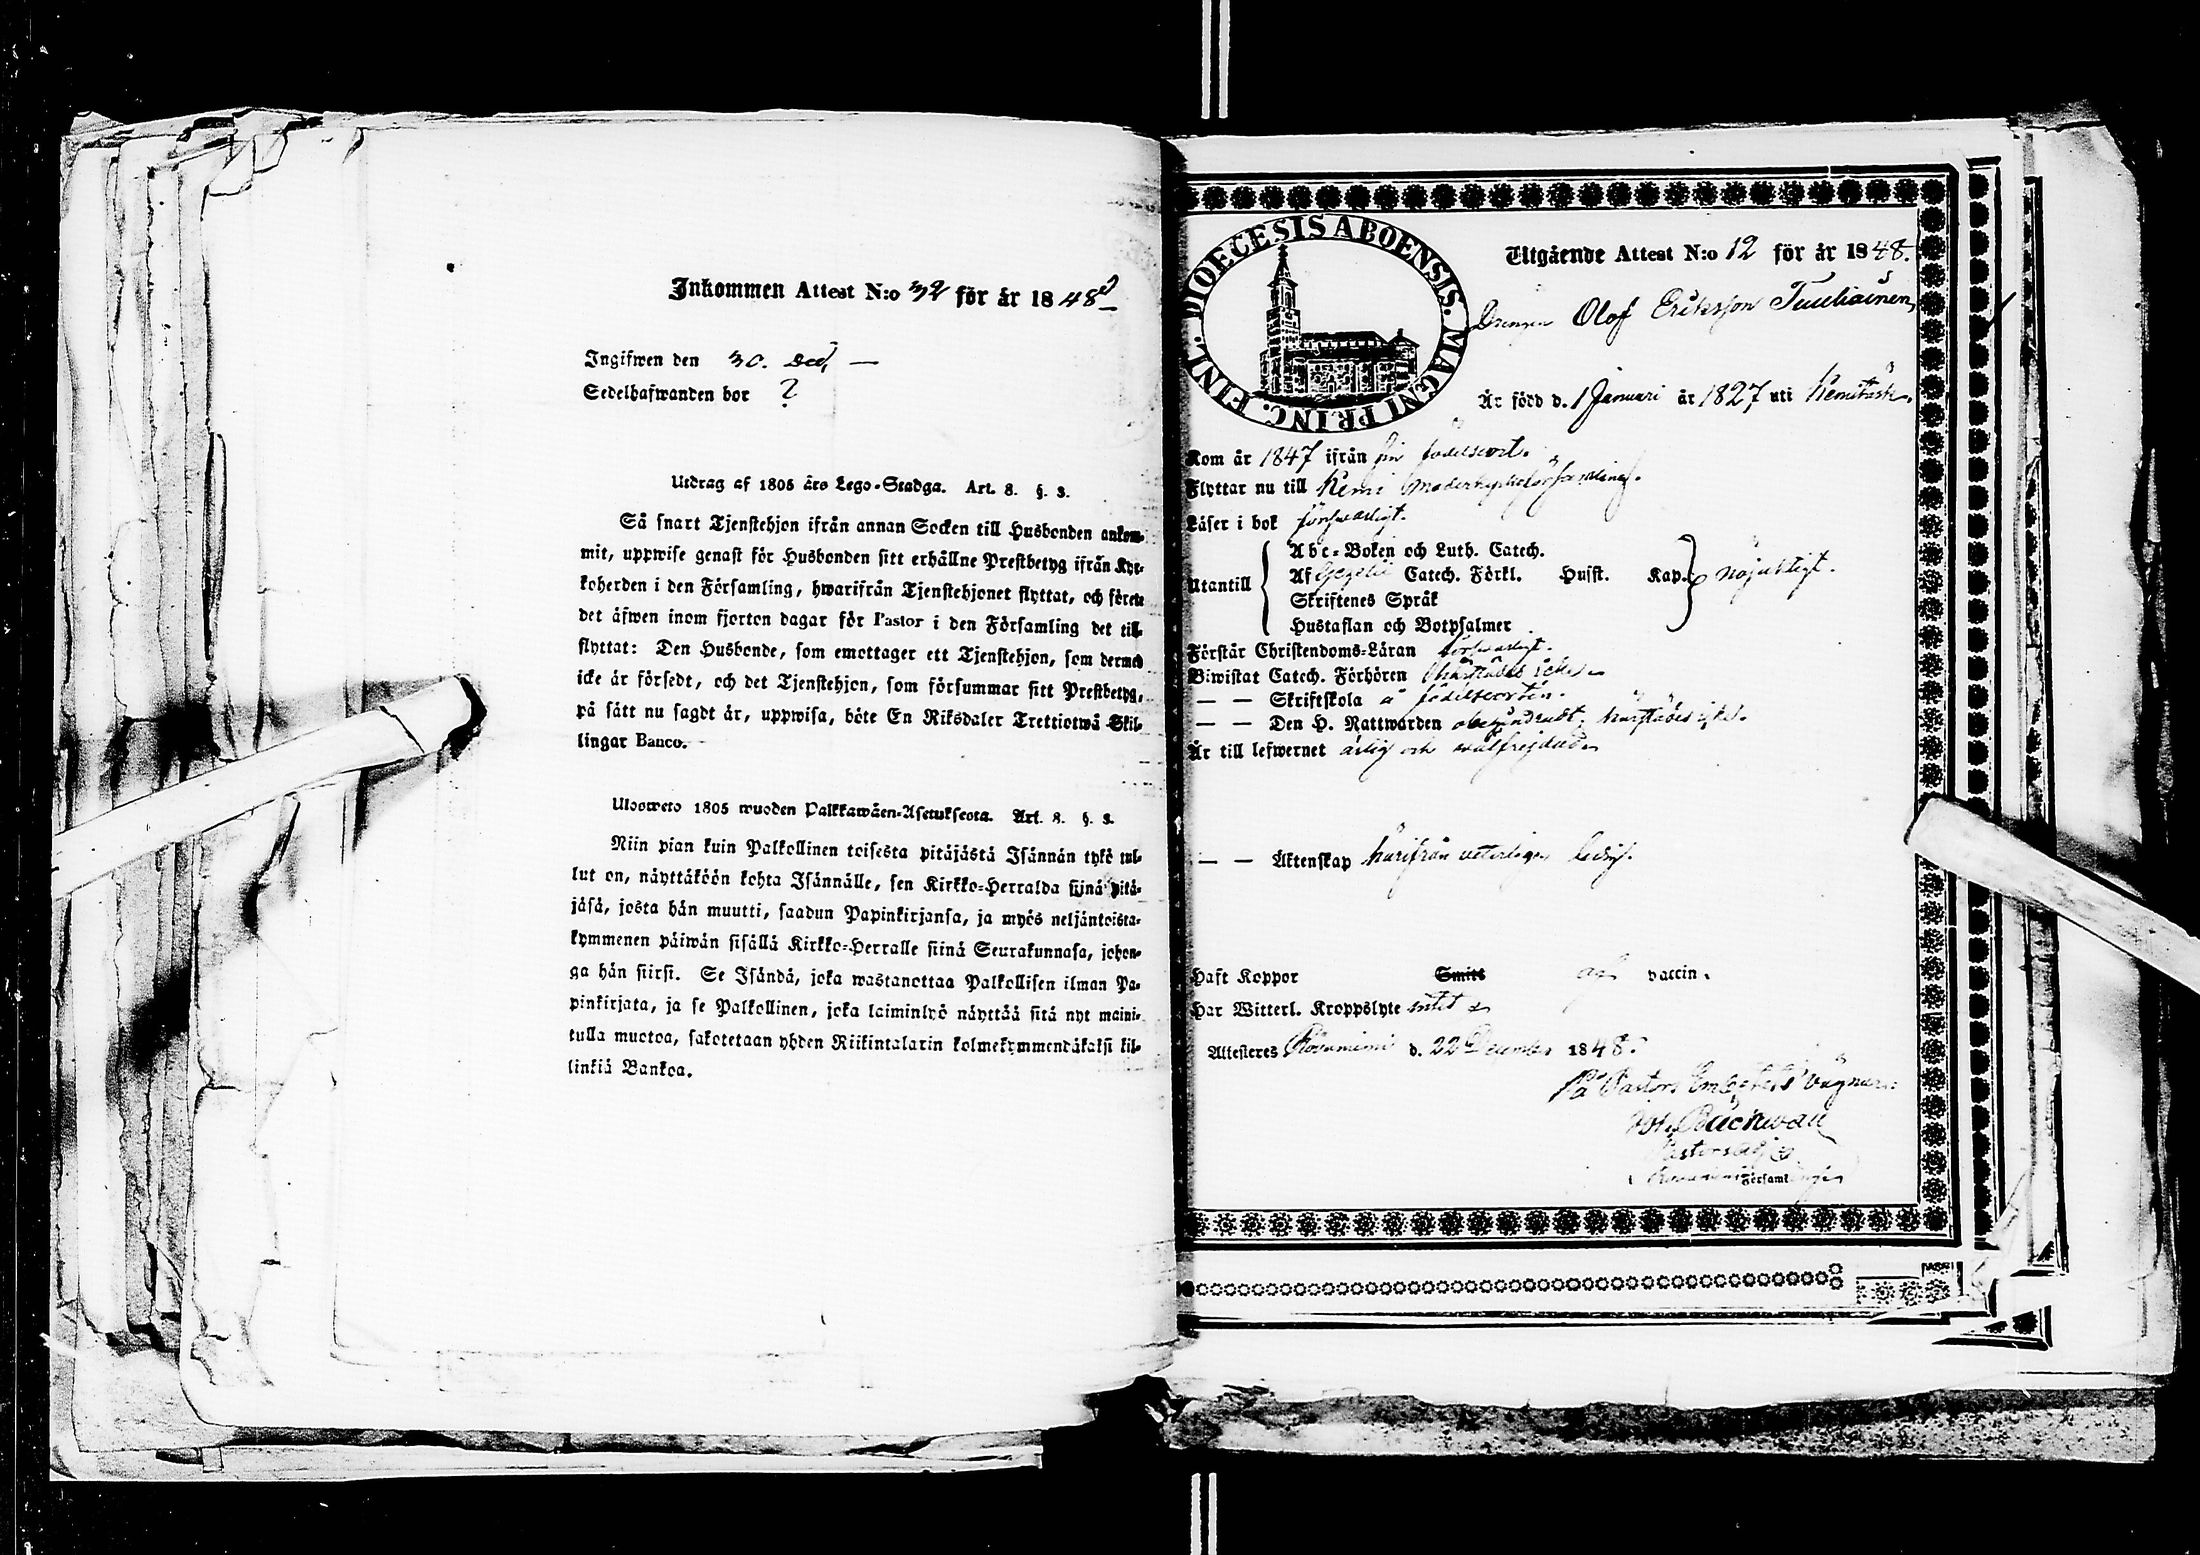 Inkommen Attest N:o 32 för år 1848
Ingifwen den 30. Dec.
Sedelhafwanden bor ?
Utdrag af 1805 års Lego-Stadga. Art. 8. §. 3.
Så snart Tjenstehjon ifrån annan Socken till Husbonden ankom-
mit, uppwise genast för Husbonden sitt erhållne Prestbetyg ifrån Kyr-
koherden i den Församling, hwarifrån Tjenstehjonet flyttat, och förete
det äfwen inom fjorton dagar för Pastor i den Församling det till-
flyttat: Den Husbonde, som emottager ett Tjenstehjon, som dermed
icke är försedt, och det Tjenstehjon, som försummar sitt Prestbetyg,
på sätt nu sagdt är, uppwisa, böte En Riksdaler Trettiotwå Skil-
lingar Banco.
Ulosweto 1805 wuoden Palkkawäen-Asetuksesta. Art. 8. §. 3.
Niin pian kuin Palkollinen toisesta pitäjästä Isännän tykö tul-
lut on, näyttäköön kohta Isännälle, sen Kirkko-Herralda siinä pitä-
jäsä, josta hän muutti, saadun Papinkirjansa, ja myös neljäntoista-
kymmenen päiwän sisällä Kirkko-Herralle siinä Seurakunnasa, johon-
ga hän siirsi. Se Isändä, joka wastanottaa Palkollisen ilman Pa-
pinkirjata, ja se Palkollinen, joka laiminlyö näyttää sitä nyt maini-
tulla muotoa, sakotetaan yhden Riikintalarin kolmekymmendäkaksi kil-
linkiä Bankoa.
DIOECESIS ABOENSIS. MAGNI PRINC. FINL.
Utgående Attest N:o 12 för år 1848.
Drengen Olof Eriksson Tuuliainen,
Är född d. 1 Januari år 1827 uti Kemiträsk.
Kom år 1847 ifrån sin födelseort.
Flyttar nu till Kemi Moderkyrkoförsamling.
Läser i bok försvarligt.
Utantill
Abc-Boken och Luth. Catech.
Af Gezelii Catech. Förkl. Husst. Kap. nöjaktigt.
Skriftenes Språk
Hustaflan och Botpsalmer
Förstår Christendoms-Läran försvarligt.
Biwistat Catech. Förhören härstädes icke.
— — Skriftskola å födelseorten.
— — Den H. Nattwarden obehindradt, härstädes icke.
Är till lefwernet ärlig och välfrejdad.
— — Äktenskap härifrån veterligen ledig.
Haft Koppor Smitt af vaccin.
Har Witterl. Kroppslyte intet
Attesteres Rovaniemi d. 22 December 1848.
På Pastors Embetets vägnar:
Joh. Bäckwall
Pastorsadj.
Församlingen